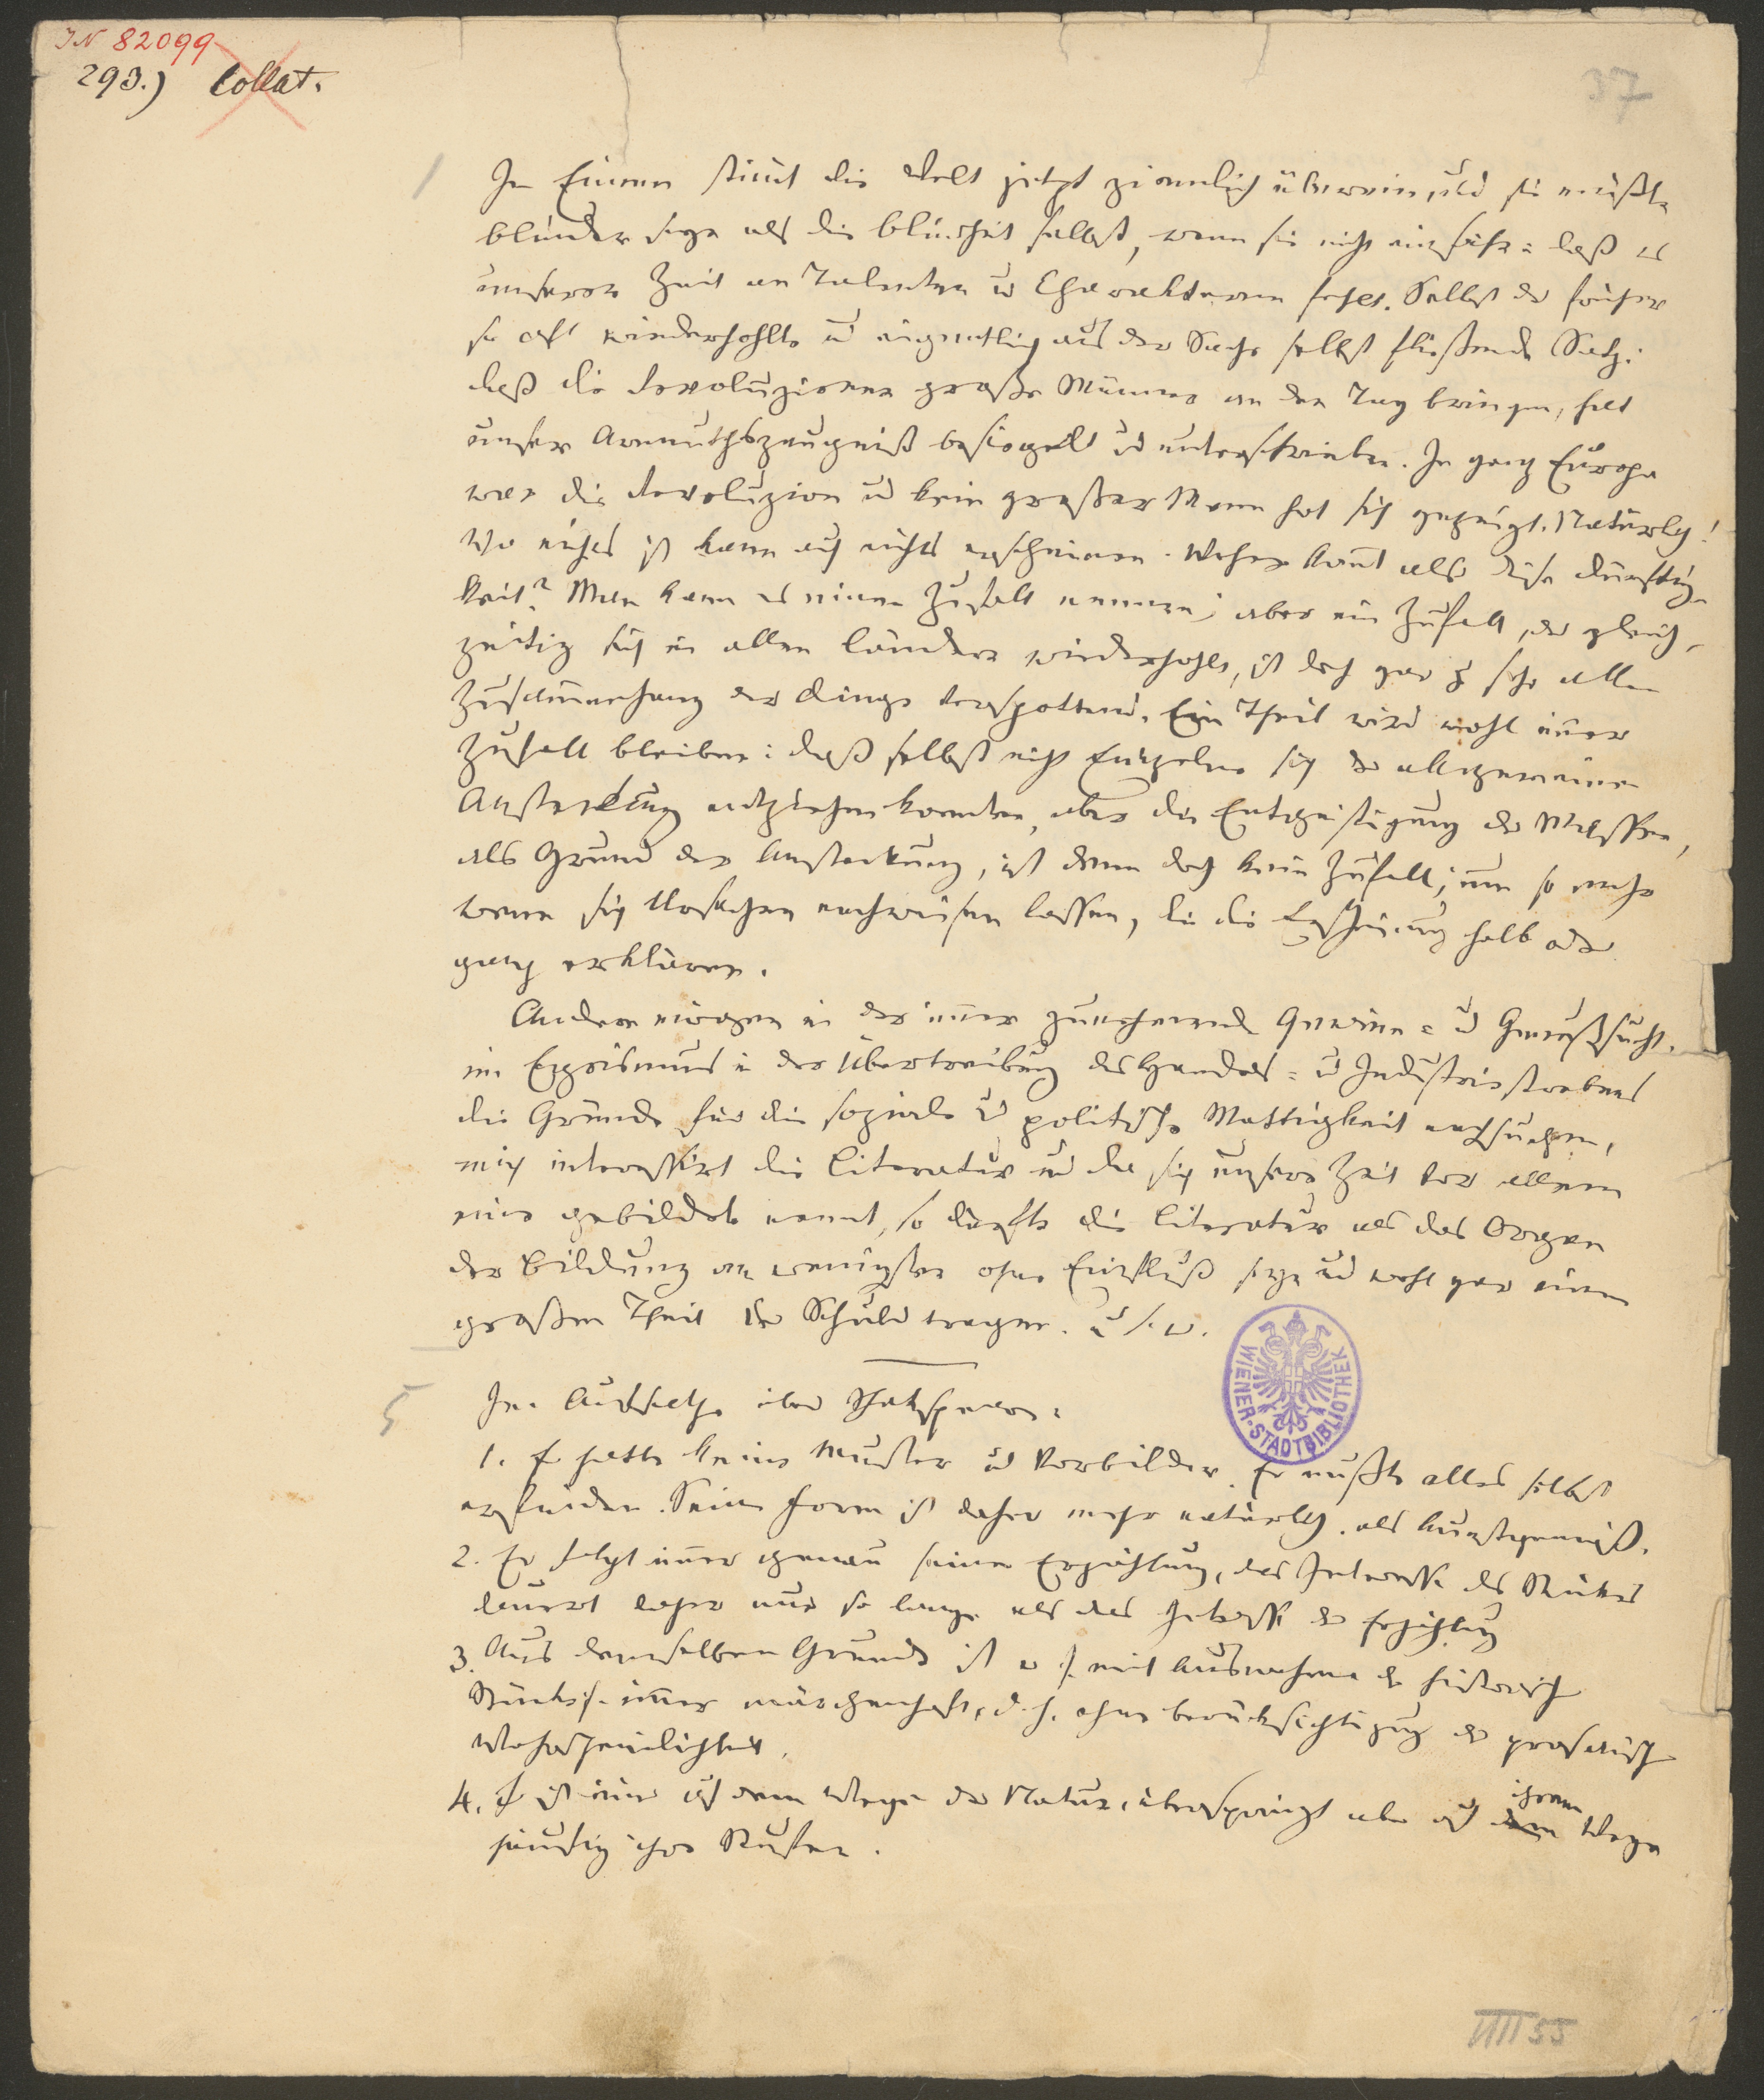 IN 82099
293.) Collat.
37
1
In Einem stimt die Welt jetzt ziemlich überein, und sie müßte
blinder seyn als die Blindheit selbst, wenn sie nicht einsähe: daß es
unserer Zeit an Talenten u Charakteren fehlt. Selbst der früher
so oft wiederhohlte und eigentlich aus der Sache selbst fließende Satz:
daß die Revoluzionen große Männer an den Tag bringen, hat
unser Armuthszeugniß besiegelt und unterschrieben. In ganz Europa
war die Revoluzion und kein großer Mann hat sich gezeigt. Natürlich!
Wo nichts ist kann auch nichts erscheinen. Woher komt also diese Dürftig-
keit? Man kann es einen Zufall nennen; aber ein Zufall, der gleich-
zeitig sich in allen Ländern wiederhohlt, ist doch gar zu sehr allen
Zusammenhang der Dinge verspottend. Ein Theil wird wohl immer
Zufall bleiben: daß selbst nicht Einzelne sich der allgemeinen
Ansteckung entziehen konnten, aber die Entgeistigung der Massen,
als Grund der Ansteckung, ist denn doch kein Zufall; um so mehr
wenn sich Ursachen nachweisen lassen, die die Erscheinung halb oder
ganz erklären.
Andere mögen in der immer zunehmenden Gewinn- und Genußsucht,
im Egoismus in der Übertreibung des Handels- und Industriestrebens
die Gründe für die soziale und politische Mattigkeit aufsuchen,
mich interessirt die Literatur und da sich unsere Zeit vor allem
eine gebildete nennt, so dürfte die Literatur als das Organ
der Bildung am wenigsten ohne Einfluß seyn und wohl gar einen
großen Theil der Schuld tragen. u. s. w.
WIENER-STADTBIBLIOTHEK
5
Im Aufsatze über Shakspeare:
1. Er hatte keine Muster und Vorbilder. Er mußte alles selbst
erfinden. Seine Form ist daher mehr natürlich, als kunstgemäß.
2. Er folgt immer genau seiner Erzählung, das Interesse des Stückes
dauert daher nur so lange als das Interesse der Erzählung
3. Aus demselben Grunde ist er /: mit Ausnahme der historisch
Stücke :/ immer märchenhaft, d. h. ohne Berücksichtigung der prosaisch
Wahrscheinlichkeit.
4. Er ist immer auf dem Wege der Natur, überspringt aber auf ihrem Wege
häufig ihre Stufen.
VIII 55